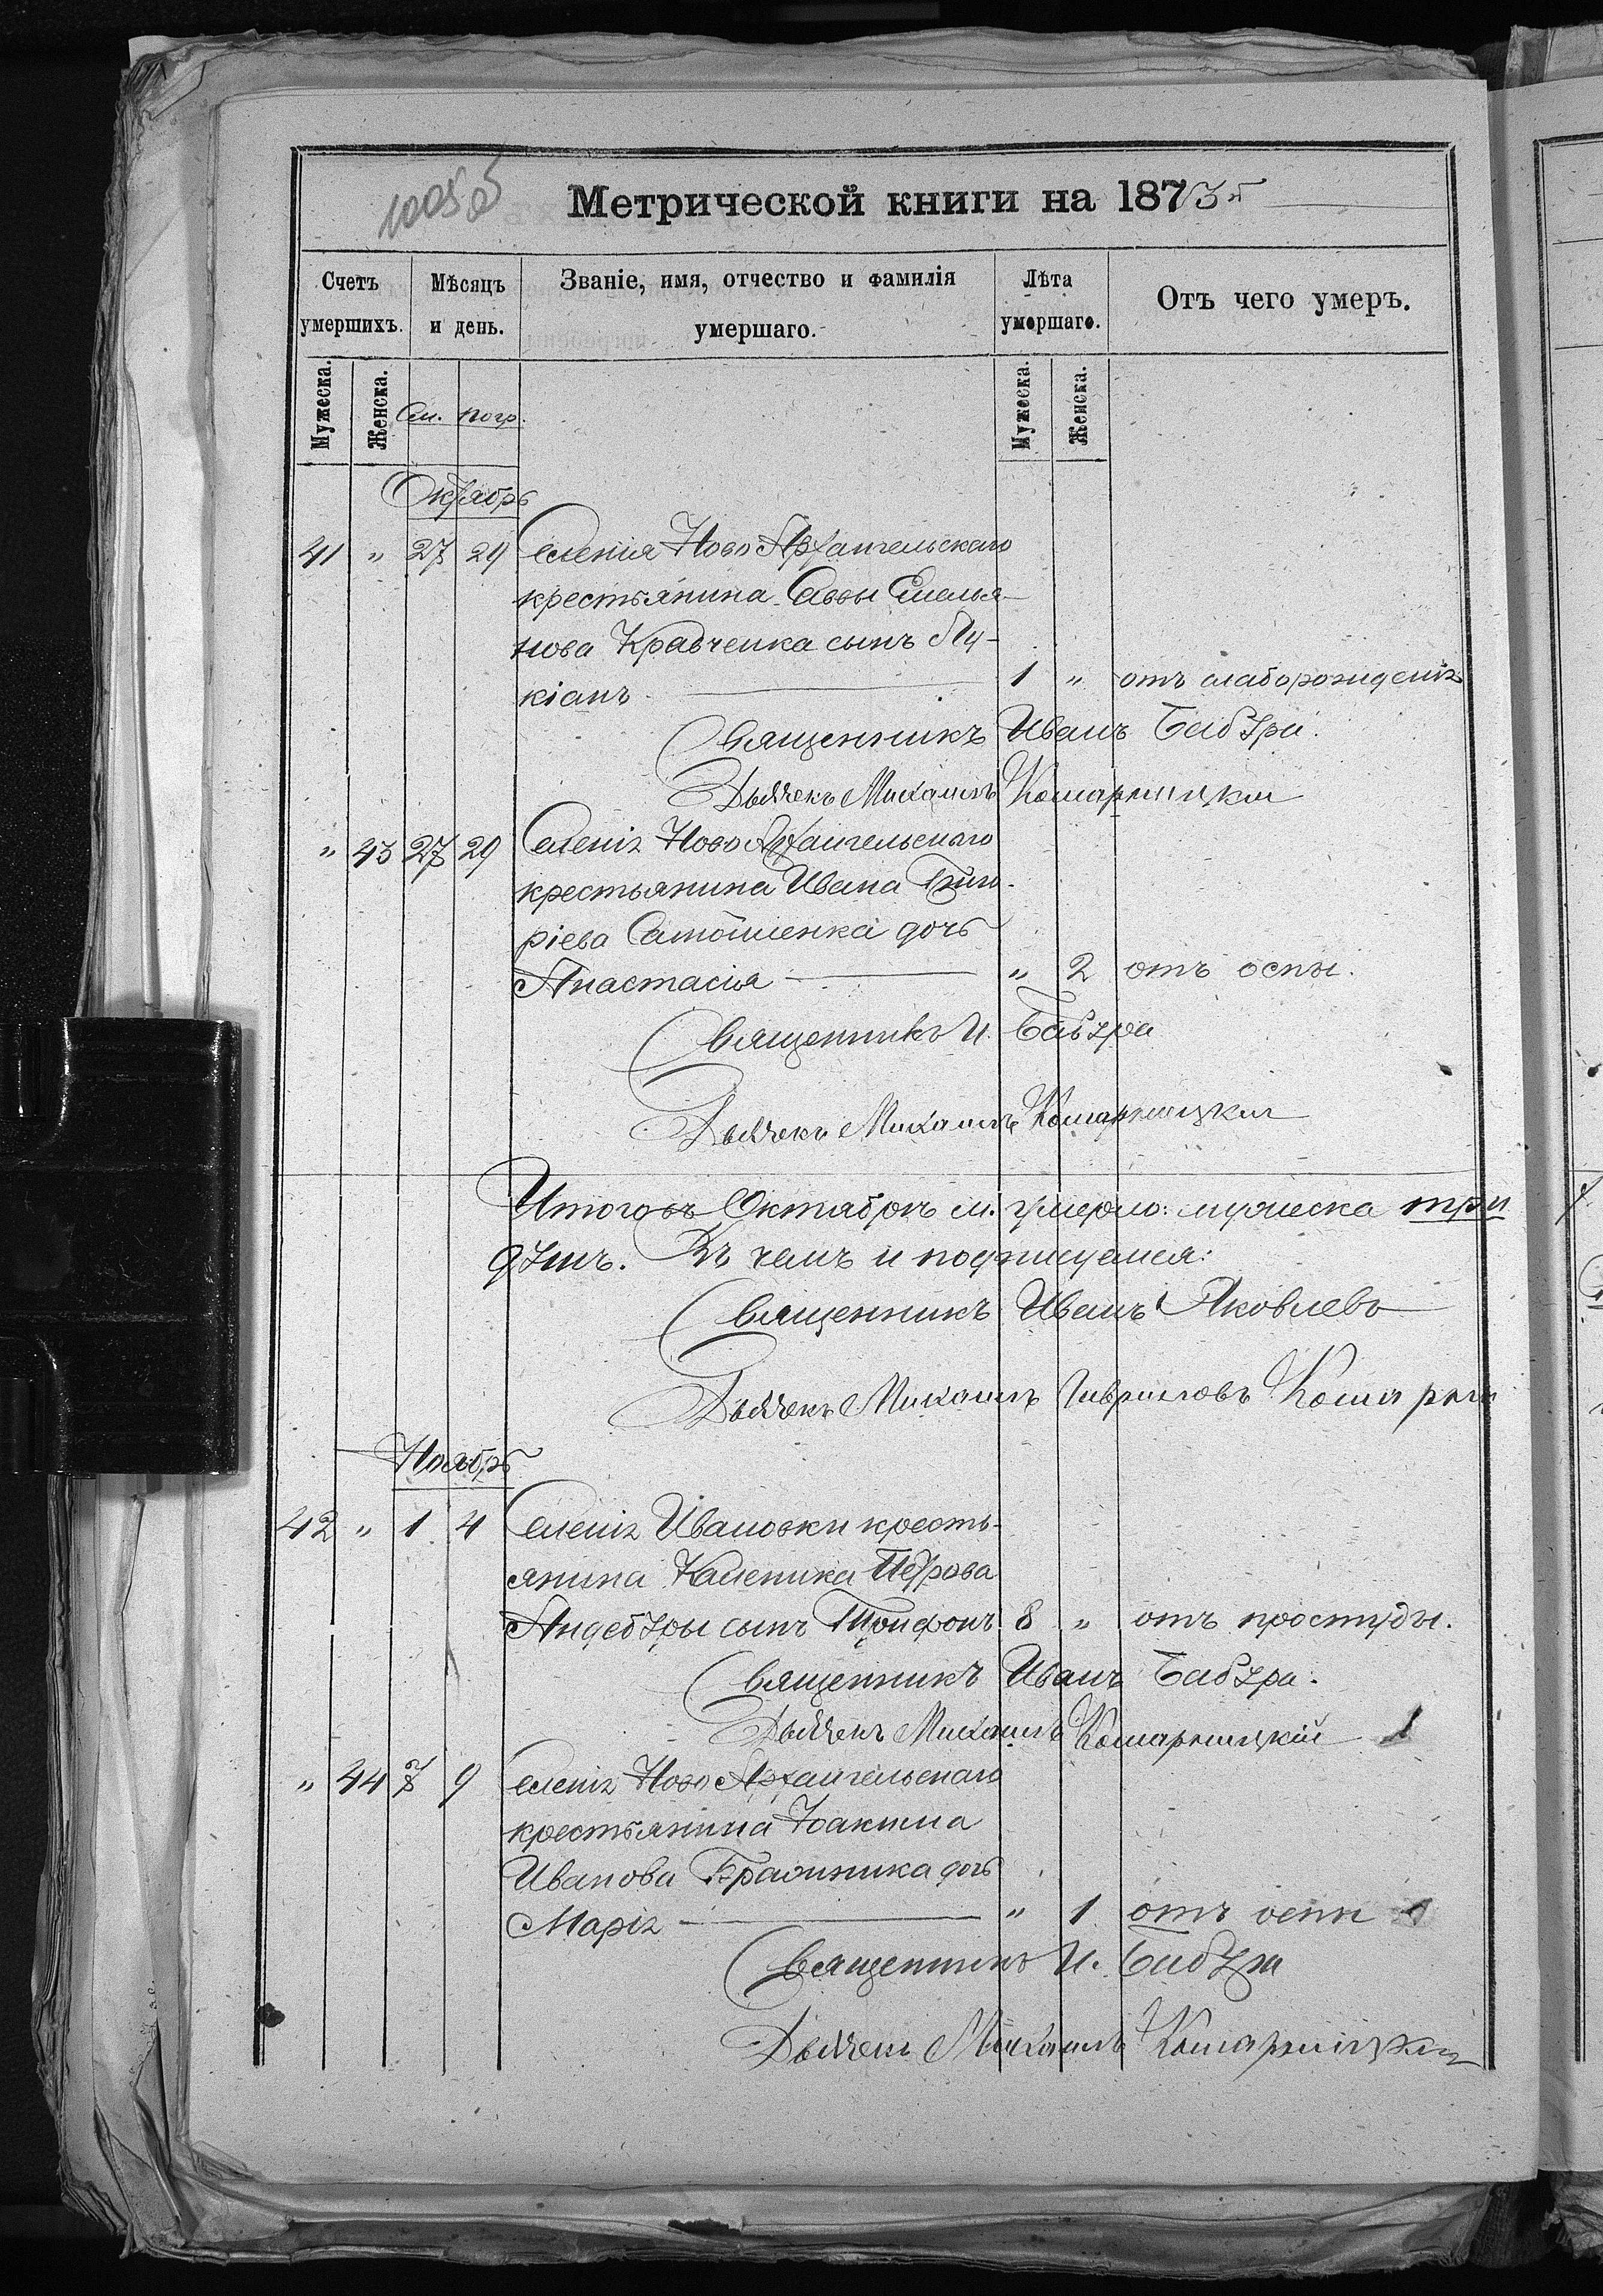 1005 об
Метрической книги на 1873й
Счетъ умершихъ. Мѣсяцъ и день. Званіе, имя, отчество и фамилія умершаго. Лѣта умершаго. Отъ чего умеръ.
Мужеска. Женска. См. погр. Мужеска. Женска.
Октябрь
41 " 27 29 Селенія Ново Архангельскаго
крестьянина Саввы Емелья-
нова Кравченка сынъ Лу-
кіанъ 1 " отъ слаборожденія
Священникъ Иванъ Бабура.
Дьячекъ Михаилъ Комарницкій
" 43 27 29 Селенія Ново Архангельскаго
крестьянина Ивана Григо-
ріева дочь
Анастасія " 2 отъ оспы.
Священникъ И. Бабура
Дьячекъ Михаилъ Комарницкій
Итого въ Октябрѣ м. умерло: мужеска три
Въ чемъ и подпишемся:
Священникъ Иванъ Яковлевъ
Дьячекъ Михаилъ Гавриловъ Комарни
Ноябрь
42 " 1 4 Селенія Ивановки кресть-
янина Каленика Петрова
сынъ Трифонъ 8 " отъ простуды.
Священникъ Иванъ Бабура.
Дьячекъ Михаилъ Комарницкій
" 44 7 9 Селенія Ново Архангельскаго
крестьянина Іоакима
Иванова дочь
Марія " 1 отъ оспы
Священникъ И. Бабура
Дьячекъ Михаилъ Комарницкій